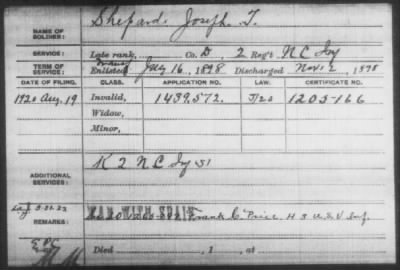 NAME OF SOLDIER: Shepard, Joseph T.
SERVICE: Late rank, Co. D, 2 Reg't NC Inf
TERM OF SERVICE: Enlisted July 16, 1898 Discharged Nov. 2, 1898
DATE OF FILING. CLASS. APPLICATION NO. LAW. CERTIFICATE NO.
1920 Aug. 19 Invalid, 1439.572. J/20 1205-166
Widow,
Minor,
ADDITIONAL SERVICES: K 2 N C Inf S1
REMARKS: WAR WITH SPAIN Frank C. Price, H 3 U.S.V. Inf.
Died , 1 , at